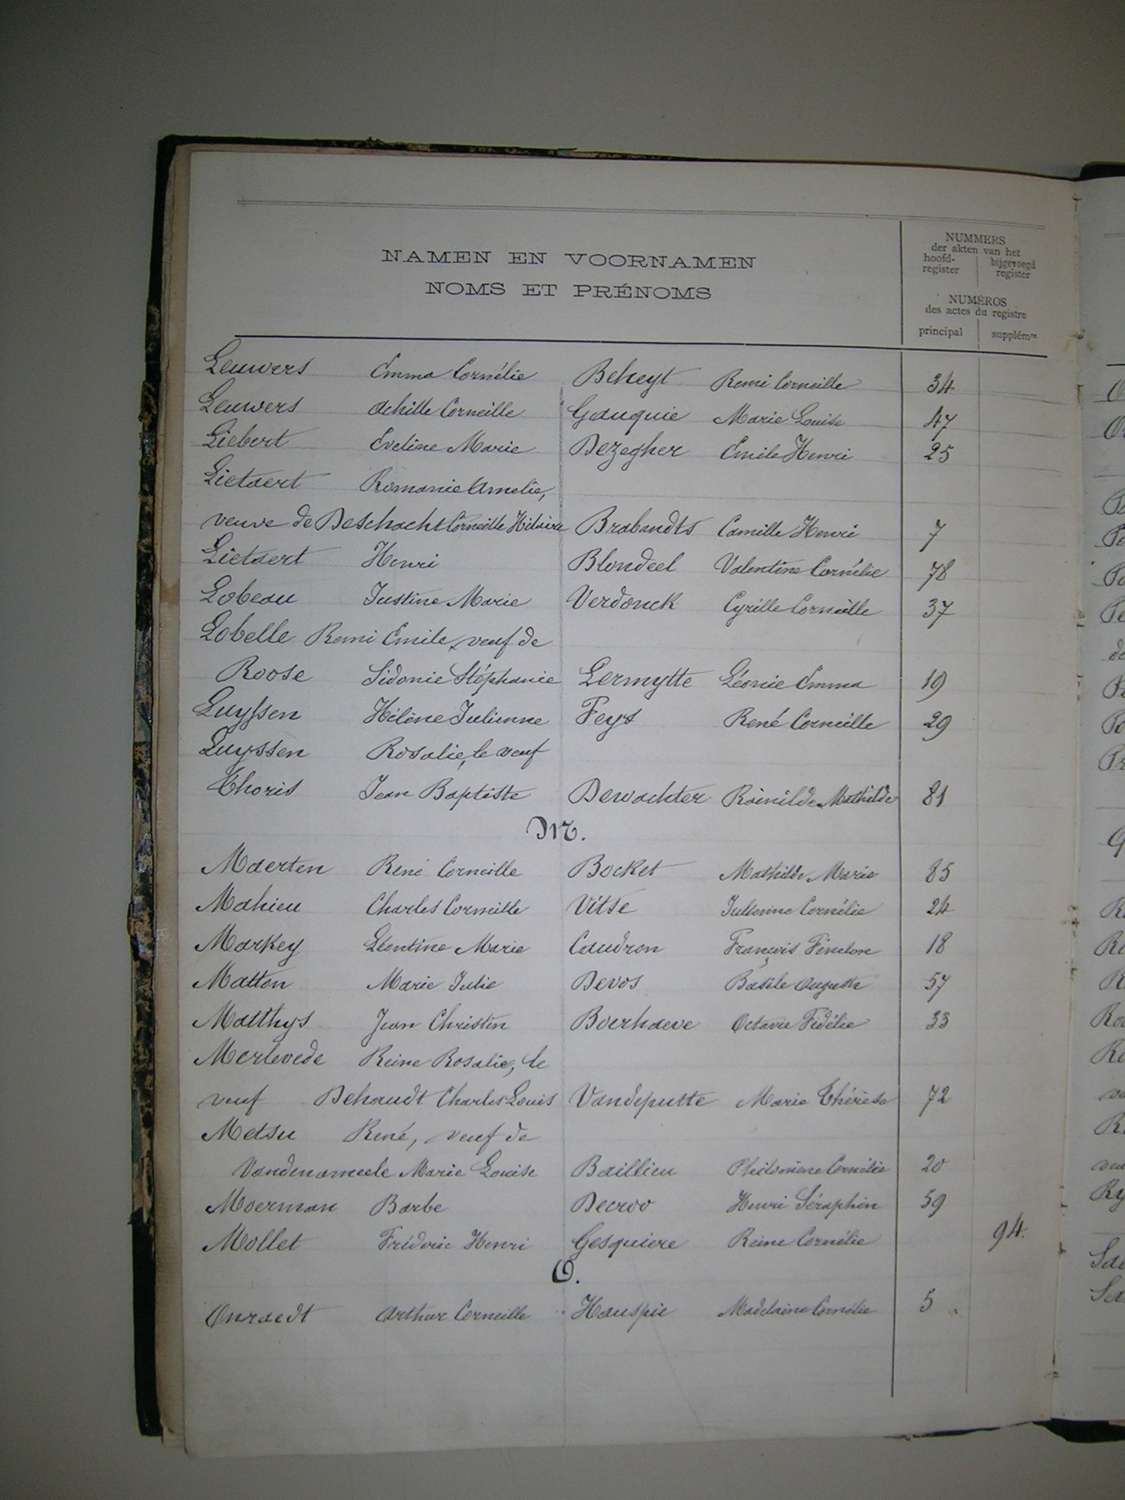 NAMEN EN VOORNAMEN
NOMS ET PRÉNOMS
NUMMERS
der akten van het
hoofd-register bijgevoegd register
NUMÉROS
des actes du registre
principal supplémre
Leuwers Emma Cornélie Beheyt Remi Corneille 34
Leuwers Achille Corneille Gauquie Marie Louise 47
Liebert Eveline Marie Dezegher Emile Henri 25
Lietaert Romanie Amelie,
veuve de Deschacht Corneille Hilaire Brabandts Camille Henri 7
Lietaert Henri Blondeel Valentine Cornélie 78
Lobeau Justine Marie Verdonck Cyrille Corneille 37
Lobelle Remi Emile, veuf de
Roose Sidonie Stéphanie Lermytte Léonie Emma 19
Luyssen Hélène Julienne Feys René Corneille 29
Luyssen Rosalie, le veuf
Thoris Jean Baptiste Dewachter Rainilde Mathilde 81
M.
Maerten René Corneille Bocket Mathilde Marie 85
Mahieu Charles Corneille Vitse Julienne Cornélie 24
Markey Léontine Marie Caudron François Fénelon 18
Matton Marie Julie Devos Basile Auguste 57
Matthys Jean Christin Boerhaeve Octavie Fidélie 33
Merlevede Reine Rosalie, le
veuf Dehaudt Charles Louis Vandeputte Marie Thérèse 72
Metsu René, veuf de
Vandenameele Marie Louise Baillieu Philomène Cornélie 20
Moerman Barbe Decroo Henri Séraphin 59
Mollet Fréderic Henri Gesquiere Reine Cornélie 94.
O.
Onraedt Arthur Corneille Hauspie Madelaine Cornélie 5